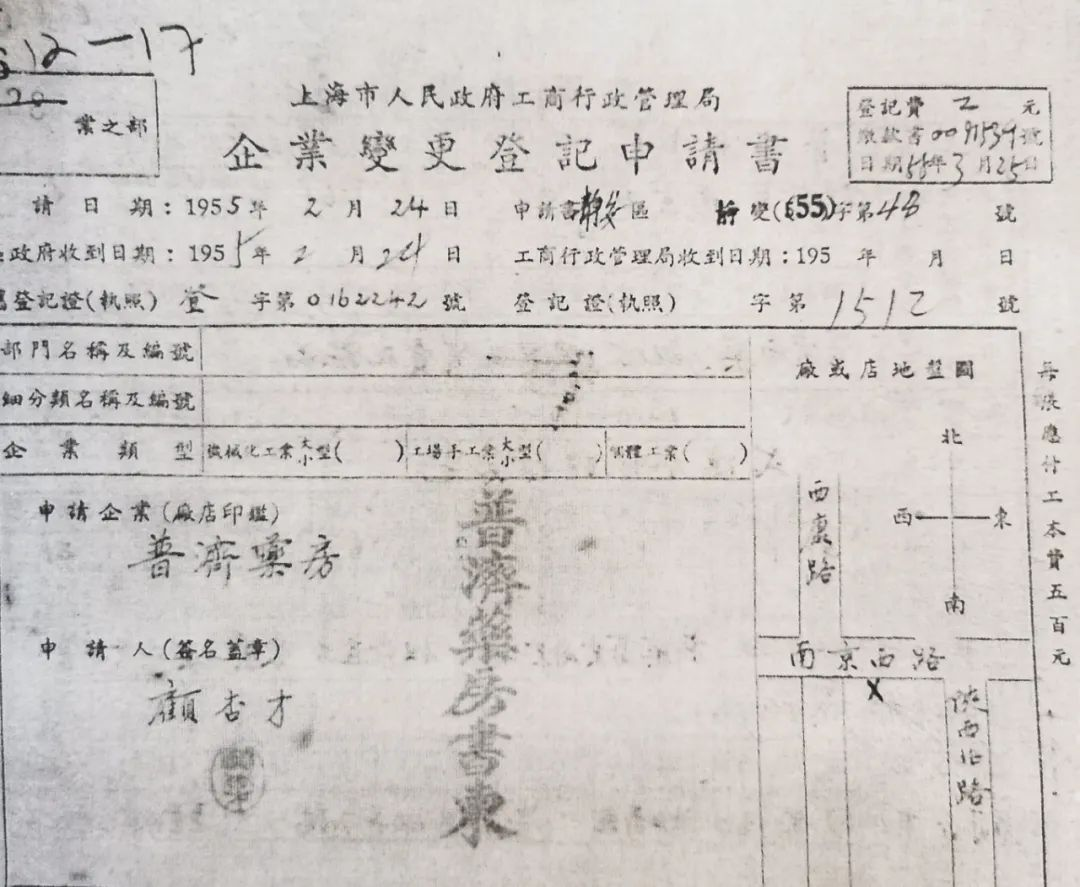 12-17
業之部
上海市人民政府工商行政管理局
企業變更登記申請書
登記費 2 元
繳款書0091539號
日期55年3月25日
請日期：1955年2月24日 申請書 區 變(55)字第48號
政府收到日期：1955年2月24日 工商行政管理局收到日期：195 年 月 日
登記證(執照) 登字第0162242號 登記證(執照) 字第1512號
部門名稱及編號
細分類名稱及編號
企業類型 機械化工業大小型( ) 工場手工業大小型( ) 個體工業( )
廠或店地盤圖
北
西 東
南
西康路
南京西路
X
陝西北路
申請企業(廠店印鑑)
普濟藥房
申請人(簽名蓋章)
顧杏才
普濟藥房書柬
每張應付工本費五百元